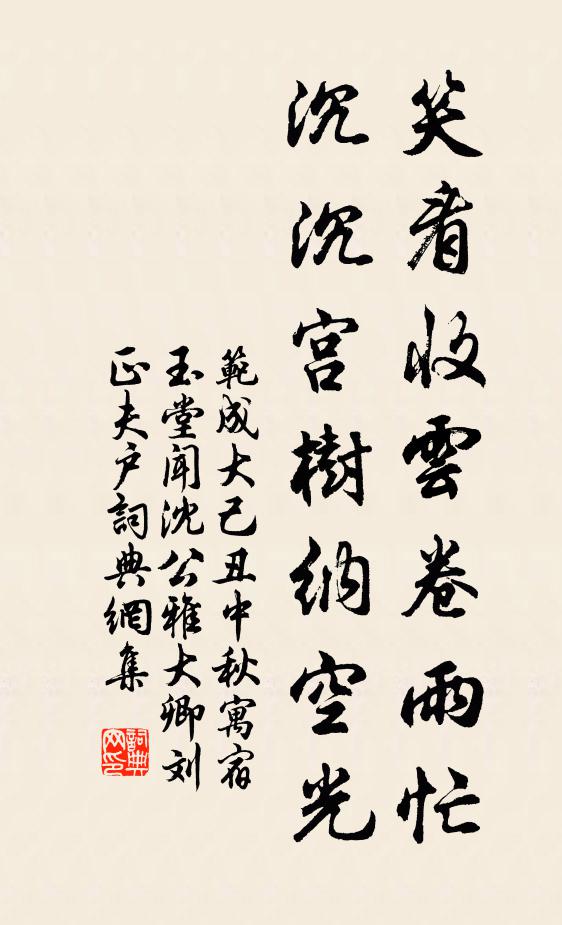 笑看收雲卷雨忙
沉沉宮樹納空光
範成大己丑中秋寓宿
玉堂闻沈公雅大卿刘
正夫户詞典網集
詞典网印